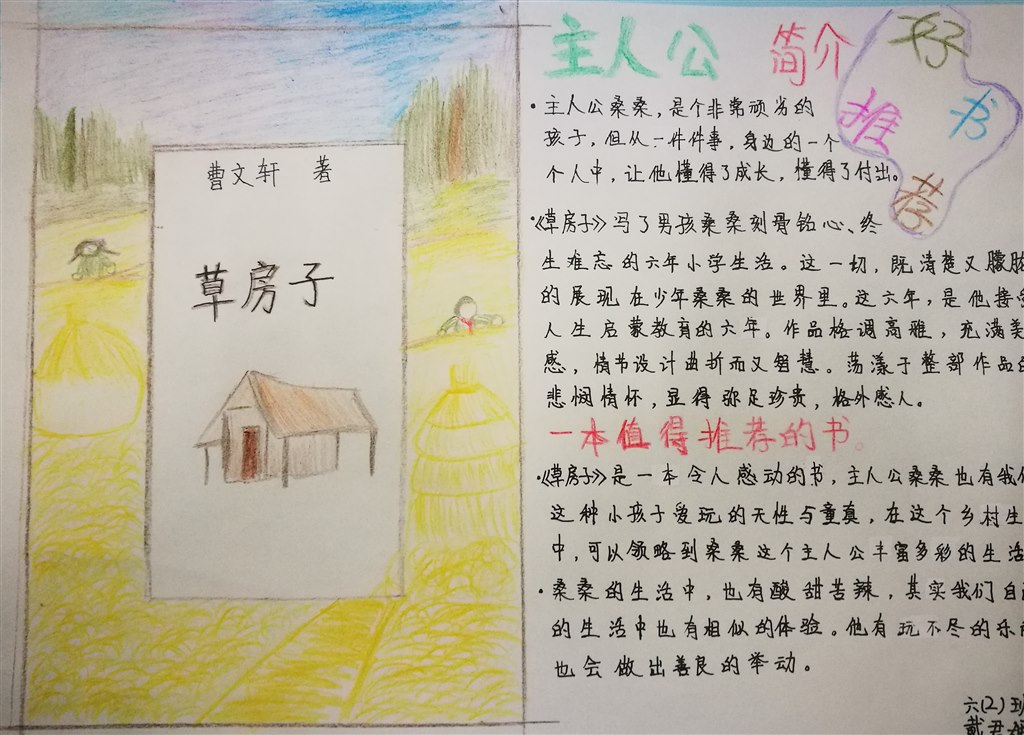 曹文轩 著
草房子
主人公 简介
好书
推荐
· 主人公桑桑，是个非常顽劣的
孩子，但从一件件事，身边的一个
个人中，让他懂得了成长，懂得了付出。
·《草房子》写了男孩桑桑刻骨铭心、终
生难忘的六年小学生活。这一切，既清楚又朦胧
的展现在少年桑桑的世界里。这六年，是他接受
人生启蒙教育的六年。作品格调高雅，充满美
感，情节设计曲折而又智慧。荡漾于整部作品的
悲悯情怀，显得弥足珍贵，格外感人。
一本值得推荐的书。
·《草房子》是一本令人感动的书，主人公桑桑也有我们
这种小孩子爱玩的天性与童真，在这个乡村生
中，可以领略到桑桑这个主人公丰富多彩的生活
· 桑桑的生活中，也有酸甜苦辣，其实我们自
的生活中也有相似的体验。他有玩不尽的乐
也会做出善良的举动。
六(2)班
戴君